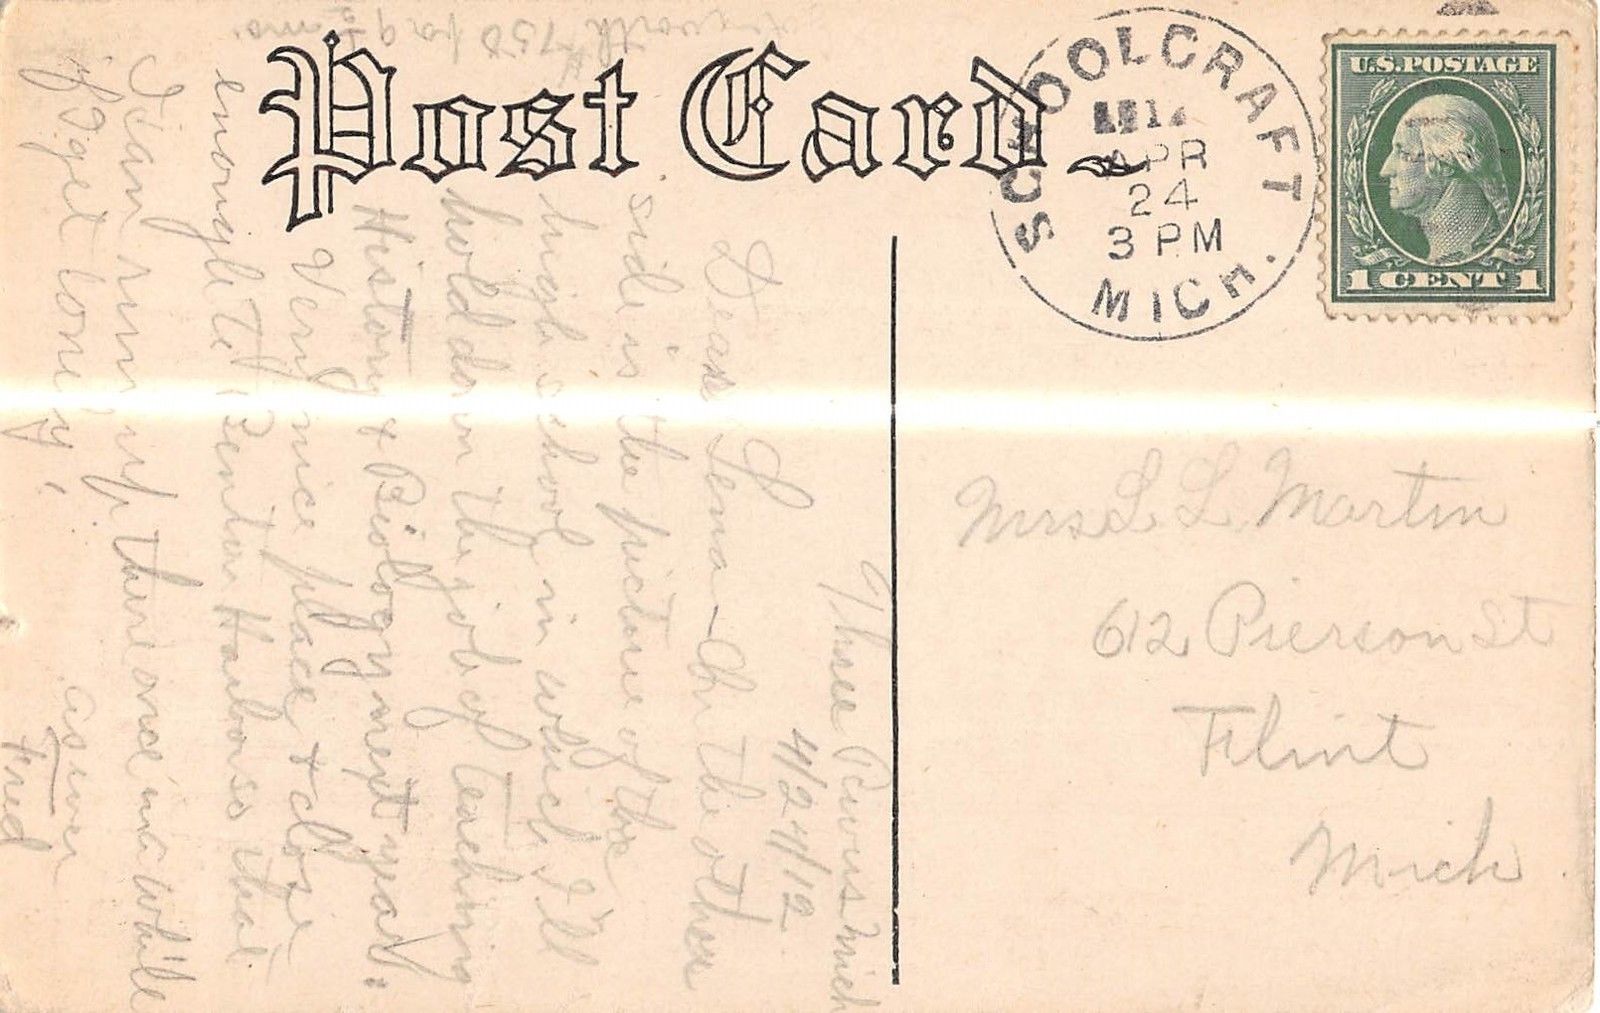 Post Card
SCHOOLCRAFT
APR
24
3 PM
MICH.
U.S. POSTAGE
1 CENT 1
Mrs L. L. Martin
612 Pierson St
Flint
Mich
Three Rivers Mich
4/24/12.
Dear Lena - On the other
side is the picture of the
high school in which I'll
hold down the job of teaching
History & Biology next year.
Very nice place & close
enough to Benton Harbor so that
I can run up there once in a while
if I get lonely.
as ever
Fred
worth 750 for 9